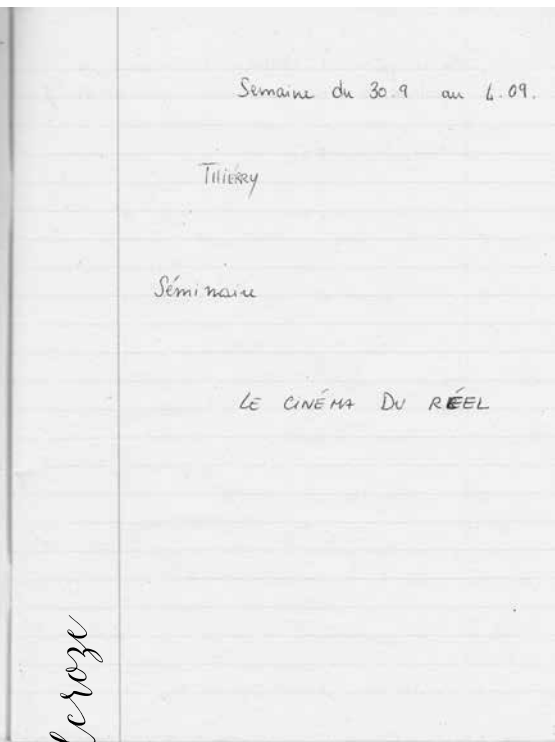 Semaine du 30.9 au 4.09.
THIERRY
Séminaire
LE CINÉMA DU RÉEL
croze